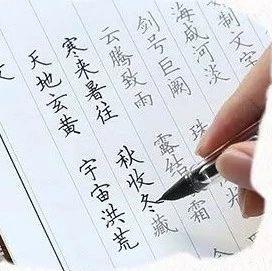 文
天地玄黄 宇宙洪荒
寒来暑往 秋收冬藏
云腾致雨 露结 霜
剑号巨阙 珠
海咸河淡
制文字